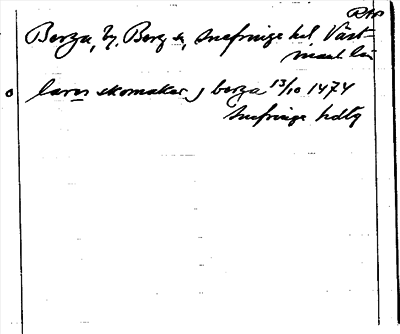 Berga, by, Berg sn, Snefringe hd Väst-
manl. län
lares skomakar j berga 13/10 1474
Snefringe hdtg